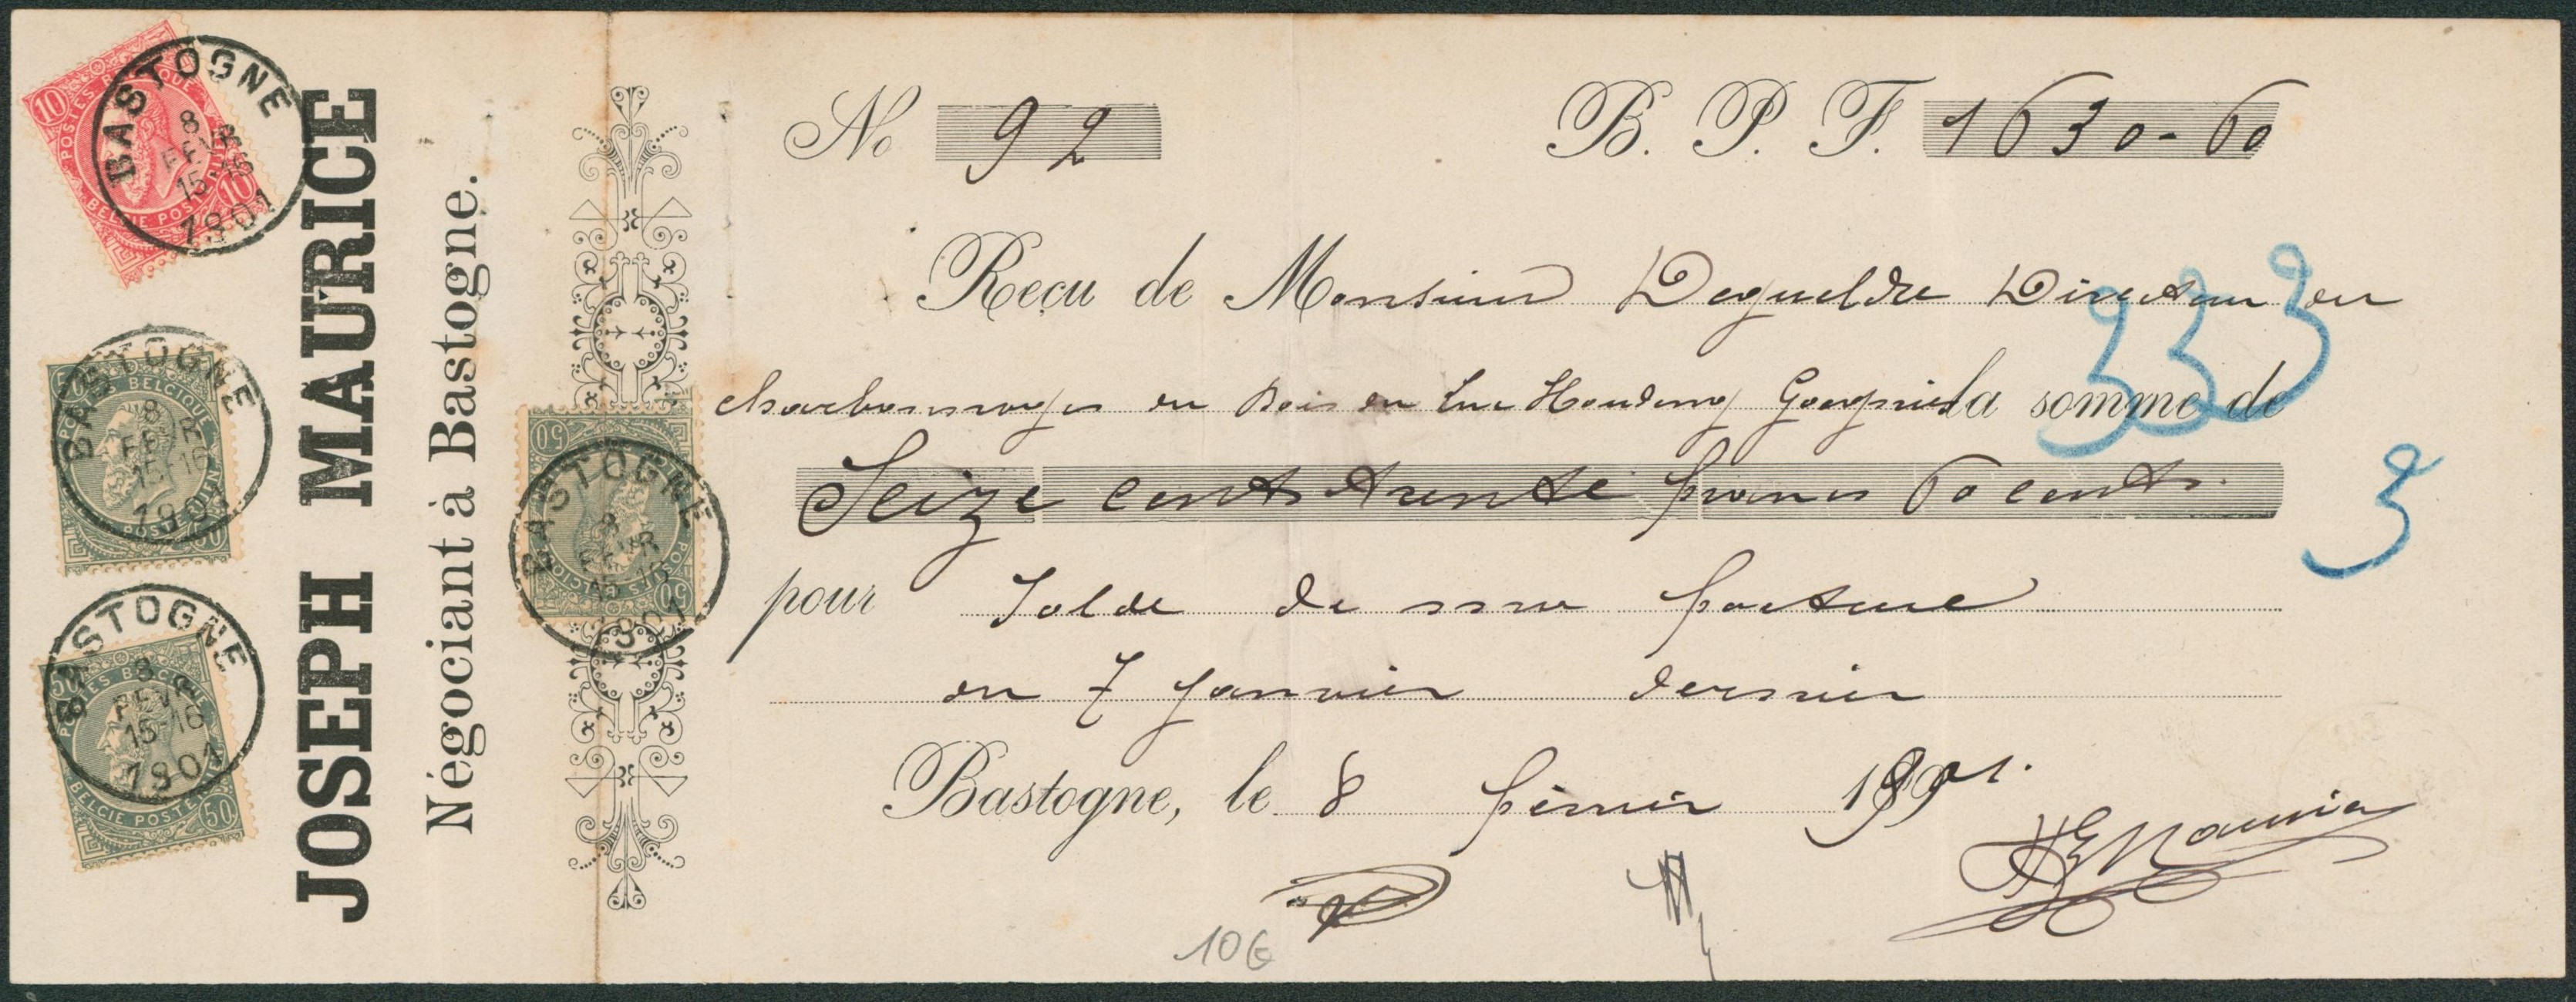 JOSEPH MAURICE
Négociant à Bastogne.
10 10
POSTES BELGIQUE
BELGIE POSTERIJEN
BASTOGNE
8
FEVR
15-16
1901
50
POSTES BELGIQUE
BASTOGNE
8
FEVR
15-16
1901
50
50
POSTES BELGIQUE
BELGIE POSTERIJEN
BASTOGNE
8
FEVR
15-16
1901
50
50
BASTOGNE
8
FEVR
15-16
1901
50
No 92 B. P. F. 1630-60
Reçu de Monsieur Degueldre Directeur du
charbonnages du Bois du Luc Houdeng Goegnies la somme de
Seize cent trente francs 60 cents.
pour Solde de ma facture
du 7 Janvier dernier
Bastogne, le 8 février 1901.
333
3
10€